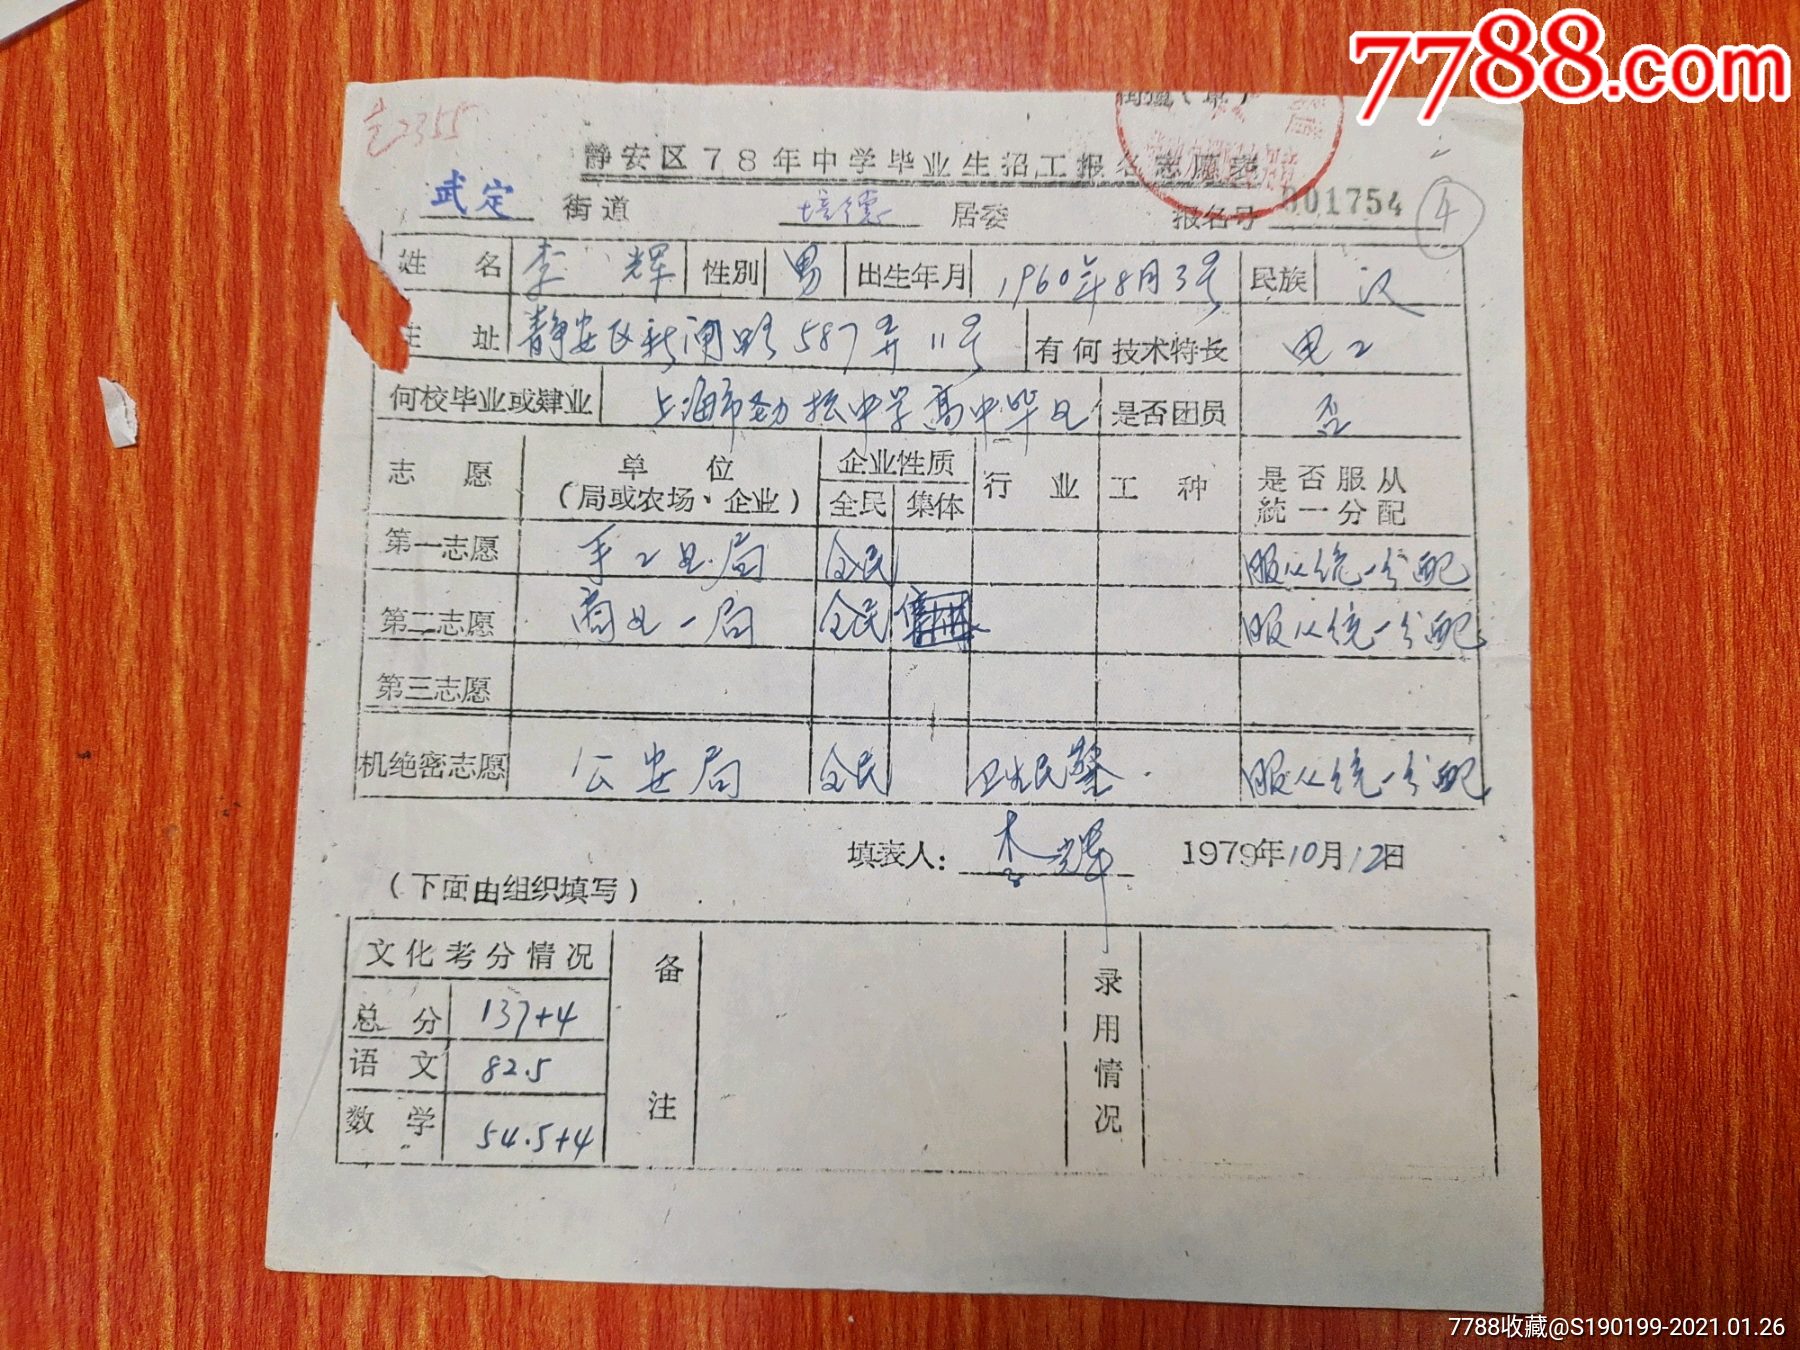 7788.com
2355
街道（章）
静安区78年中学毕业生招工报名志愿表
武定 街道 培德 居委 报名号 001754 4
姓 名 李 辉 性别 男 出生年月 1960年8月3号 民族 汉
住 址 静安区新闸路587弄11号 有何技术特长 电工
何校毕业或肄业 上海市劲松中学高中毕业 是否团员 否
志 愿 单 位 （局或农场、企业） 企业性质 全民 集体 行 业 工 种 是否服从統一分配
第一志愿 手工业局 全民 服从统一分配
第二志愿 商业一局 全民 服从统一分配
第三志愿
机绝密志愿 公安局 全民 卫生民警 服从统一分配
填表人：李辉 1979年10月12日
（下面由组织填写）
文化考分情况 备 注 录用情况
总 分 137+4
语 文 82.5
数 学 54.5+4
7788收藏@S190199-2021.01.26